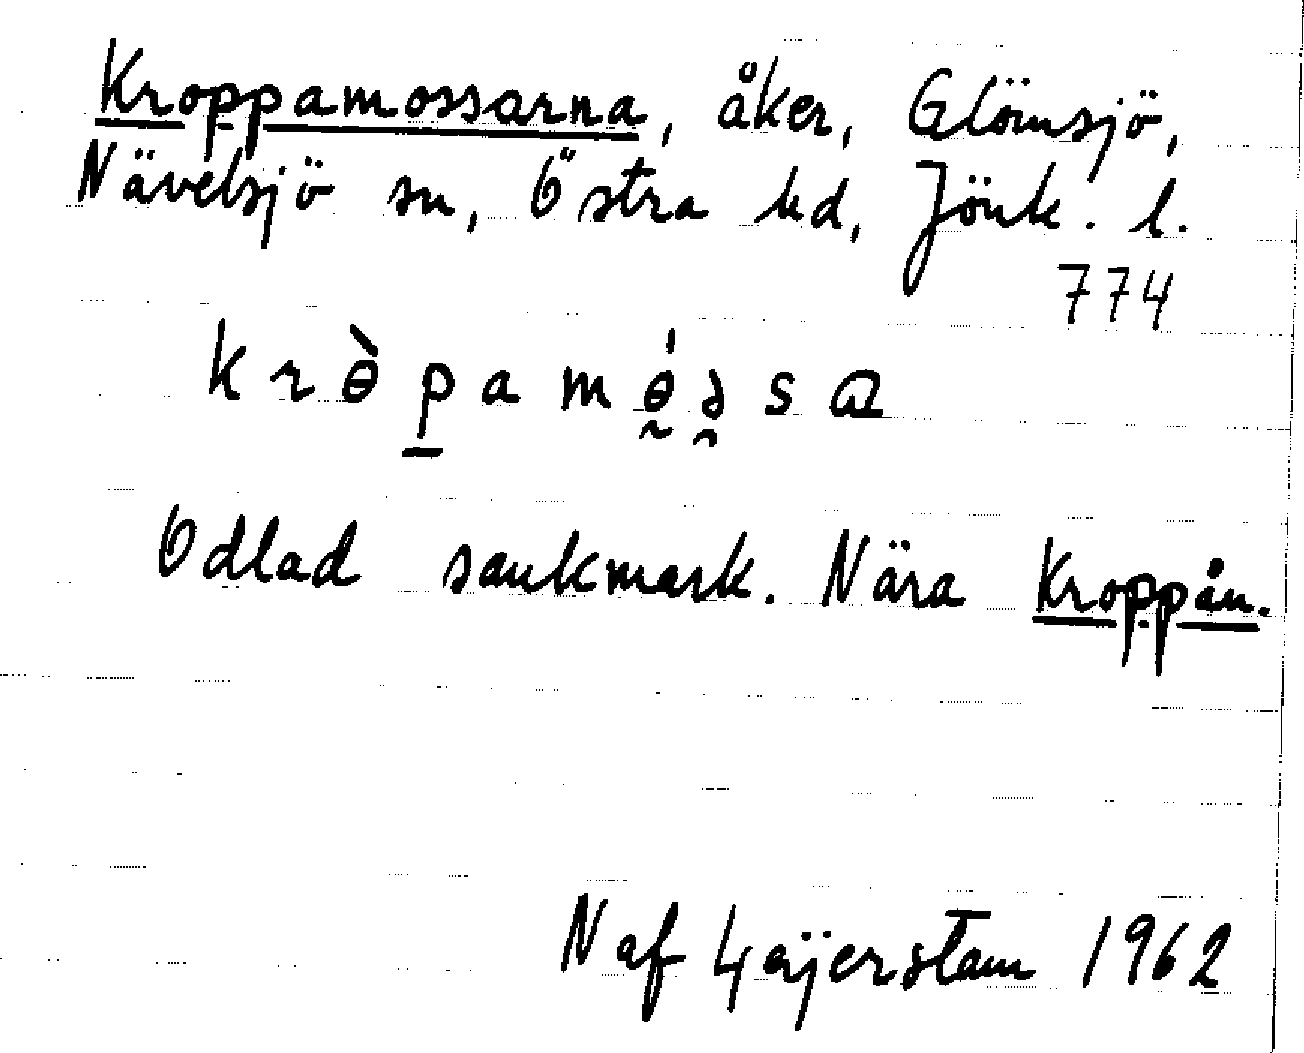 Kroppamossarna, åker, Glömsjö,
Nävelsjö sn, Östra hd, Jönk. l.
774
Odlad sankmark. Nära Kroppån.
N af Geijerstam 1962